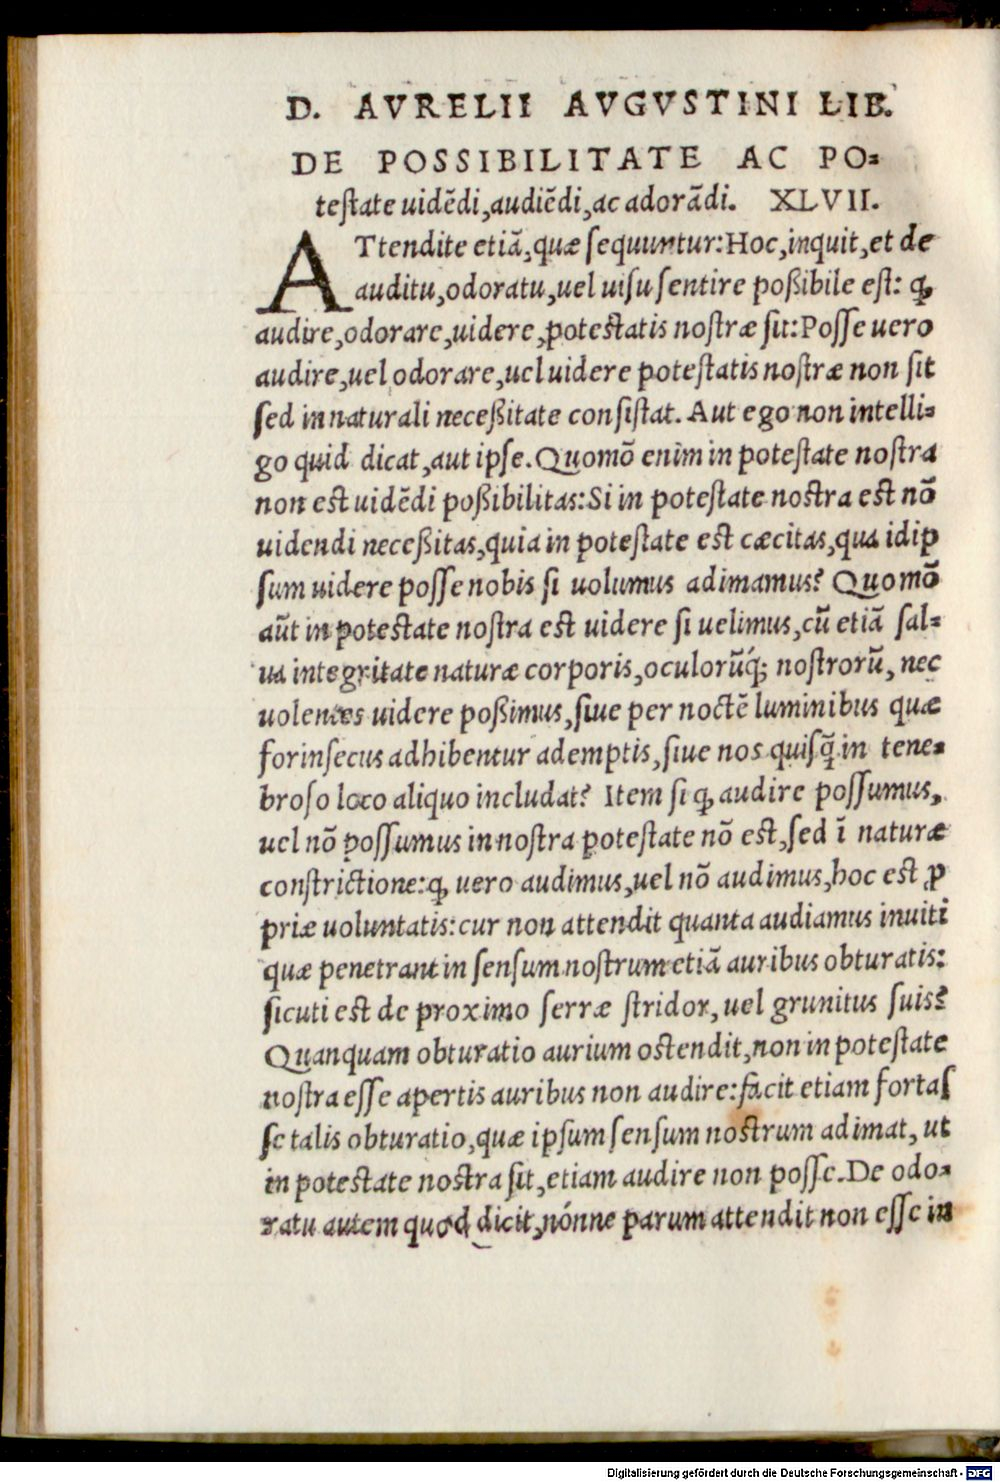 D. AVRELII AVGVSTINI LIB.
DE POSSIBILITATE AC PO=
testate uidẽdi, audiẽdi, ac adorãdi. XLVII.
ATtendite etiã, quæ sequuntur: Hoc, inquit, et de
auditu, odoratu, uel uisu sentire poßibile est: ꝙ
audire, odorare, uidere, potestatis nostræ sit: Posse uero
audire, uel odorare, uel uidere potestatis nostræ non sit
sed in naturali neceßitate consistat. Aut ego non intelli=
go quid dicat, aut ipse. Quomõ enim in potestate nostra
non est uidẽdi poßibilitas: Si in potestate nostra est nõ
uidendi neceßitas, quia in potestate est cæcitas, qua idip
sum uidere posse nobis si uolumus adimamus? Quomõ
aũt in potestate nostra est uidere si uelimus, cũ etiã sal=
ua integritate naturæ corporis, oculorũq́; nostrorũ, nec
uolentes uidere poßimus, siue per noctẽ luminibus quæ
forinsecus adhibentur ademptis, siue nos quisq̃ in tene=
broso loco aliquo includat? Item si ꝙ audire possumus,
uel nõ possumus in nostra potestate nõ est, sed ĩ naturæ
constrictione: ꝙ uero audimus, uel nõ audimus, hoc est ꝓ
priæ uoluntatis: cur non attendit quanta audiamus inuiti
quæ penetrant in sensum nostrum etiã auribus obturatis:
sicuti est de proximo serræ stridor, uel grunitus suis?
Quanquam obturatio aurium ostendit, non in potestate
nostra esse apertis auribus non audire: facit etiam fortas
se talis obturatio, quæ ipsum sensum nostrum adimat, ut
in potestate nostra sit, etiam audire non posse. De odo=
ratu autem quod dicit, nónne parum attendit non esse in
Digitalisierung gefördert durch die Deutsche Forschungsgemeinschaft - DFG